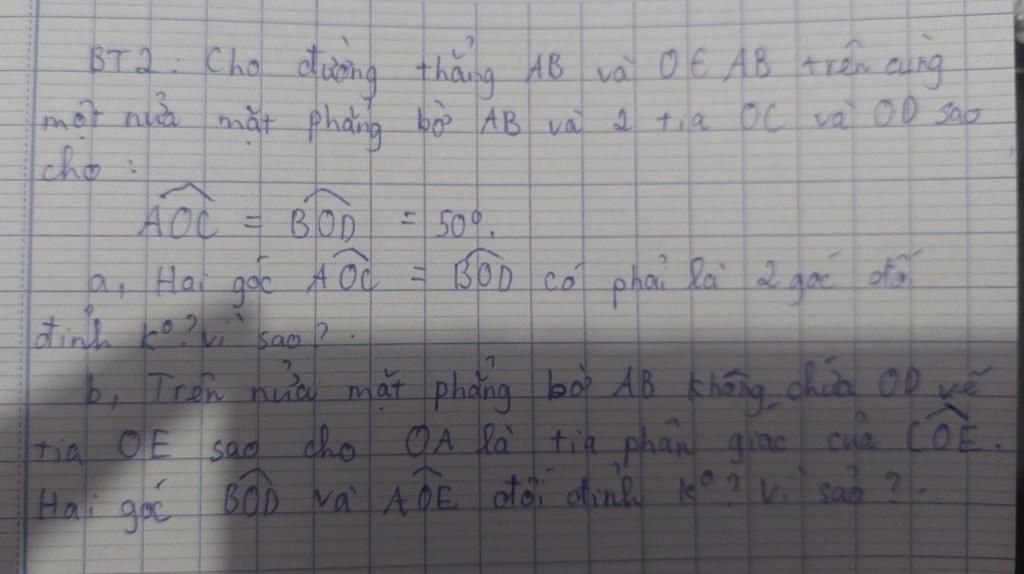 BT2: Cho đường thẳng AB và O∈AB trên cùng
một nửa mặt phẳng bờ AB và 2 tia OC và OD sao
cho:
\widehat{AOC} = \widehat{BOD} = 50°.
a, Hai góc \widehat{AOC} = \widehat{BOD} có phải là 2 góc đối
đỉnh k°? vì sao?.
b, Trên nửa mặt phẳng bờ AB không chứa OD vẽ
tia OE sao cho OA là tia phân giác của \widehat{COE}.
Hai góc \widehat{BOD} và \widehat{AOE} đối đỉnh k°? Vì sao?.